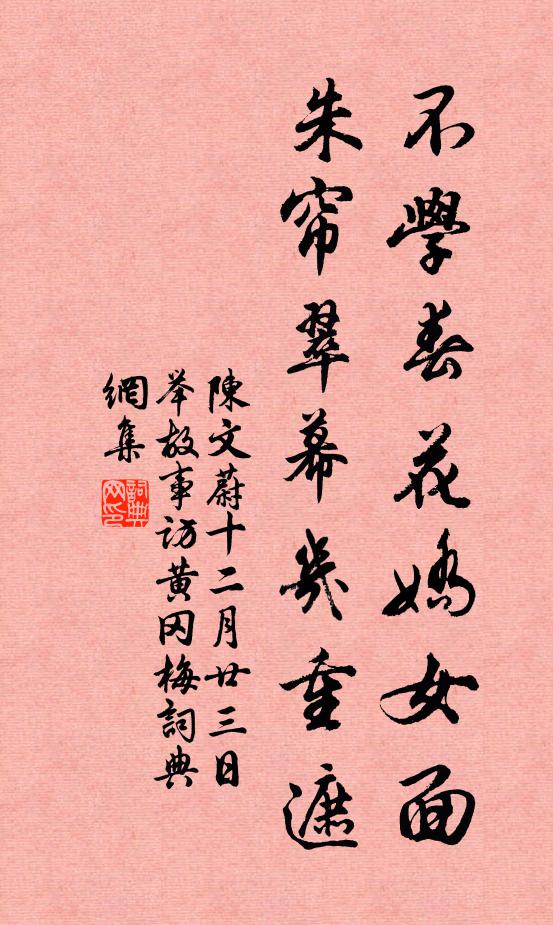 不學春花嬌女面
朱帘翠幕幾重遮
陳文蔚十二月廿三日
举故事访黄冈梅詞典
網集
詞典
网印